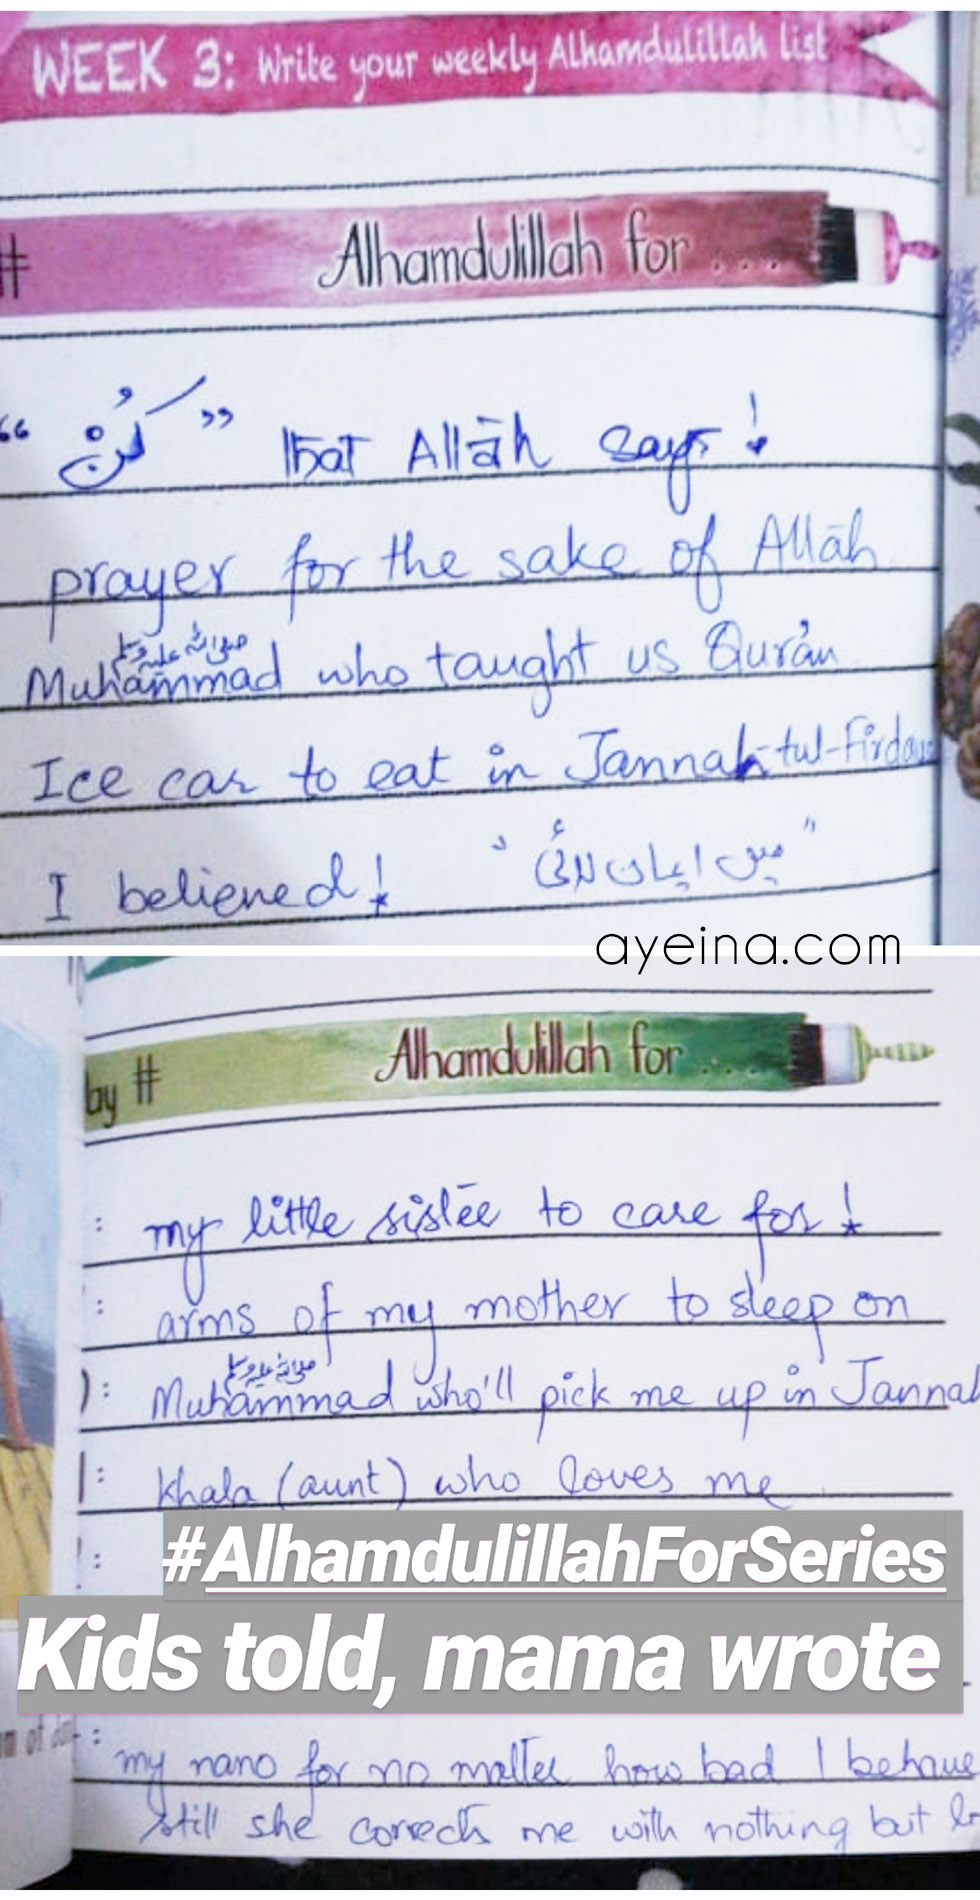 WEEK 3: Write your weekly Alhamdulillah list
# Alhamdulillah for ....
“كُنْ” that Allāh says!
prayer for the sake of Allāh
Muhammad صلى الله عليه وسلم who taught us Qur'ān
Ice car to eat in Jannah-tul-Firdaus
I believed! "میں ایمان لائی"
ayeina.com
by # Alhamdulillah for ....
: my little sister to care for!
: arms of my mother to sleep on
): Muhammad صلى الله عليه وسلم who'll pick me up in Jannah
: Khala (aunt) who loves me
#AlhamdulillahForSeries
Kids told, mama wrote
: my nano for no matter how bad I behave
still she corrects me with nothing but